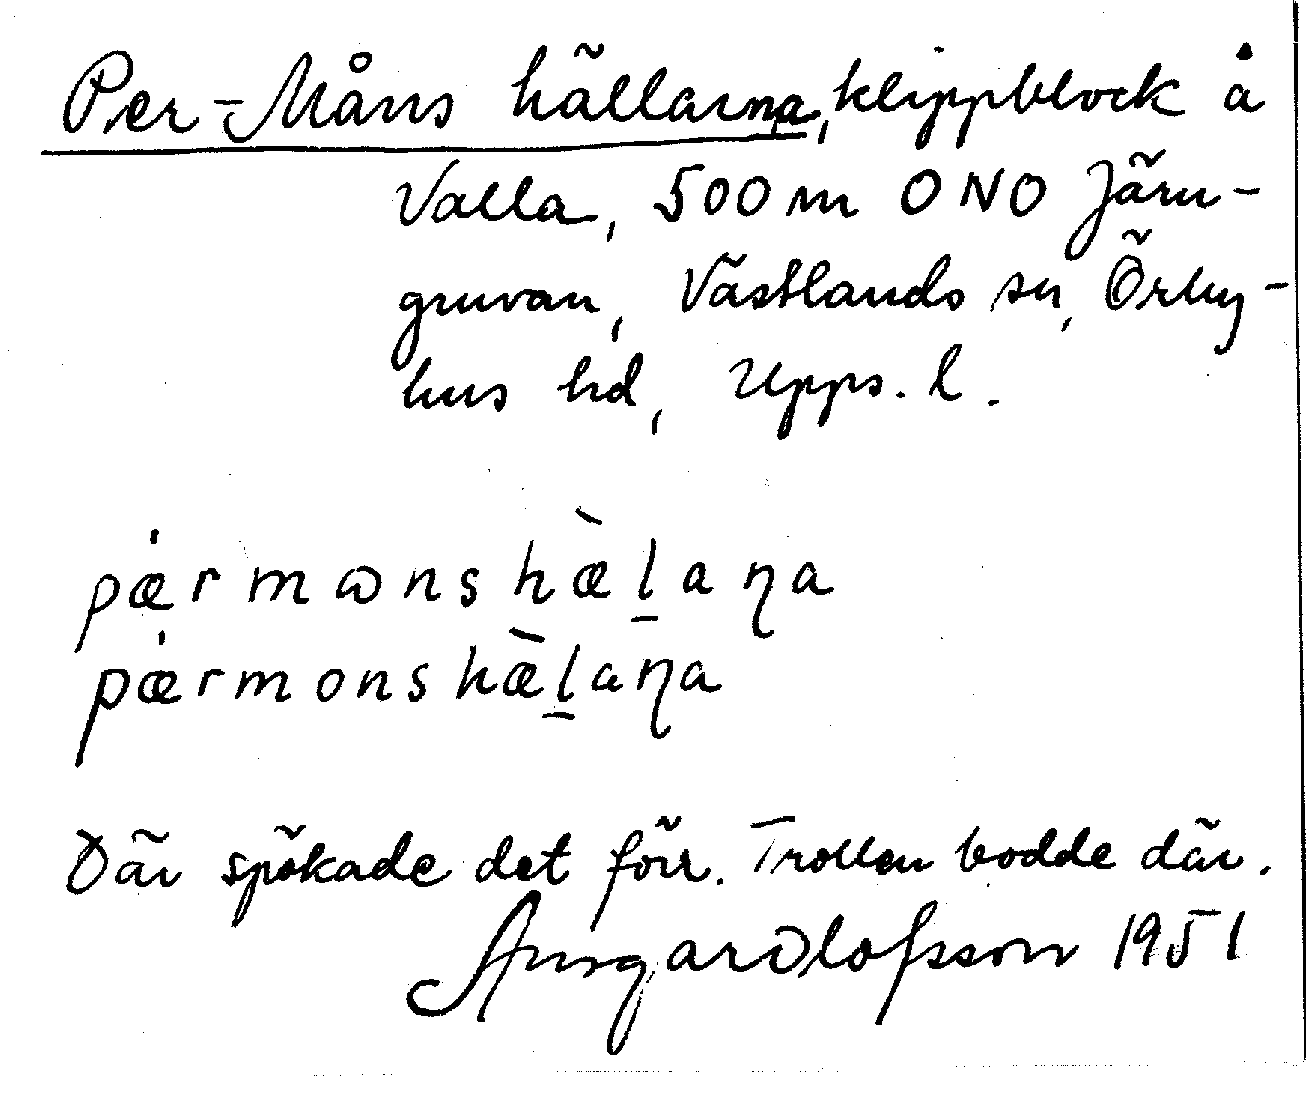 Per-Måns hällarna, klippblock å
Valla, 500 m ONO Järn-
gruvan, Västlands sn, Örby-
hus hd, Upps. l.
pæ̍rmɷnshæ̀l̠aŋa
pæ̍rmonshæ̀l̠aŋa
Där spökade det förr. Trollen bodde där.
Olofsson 1951